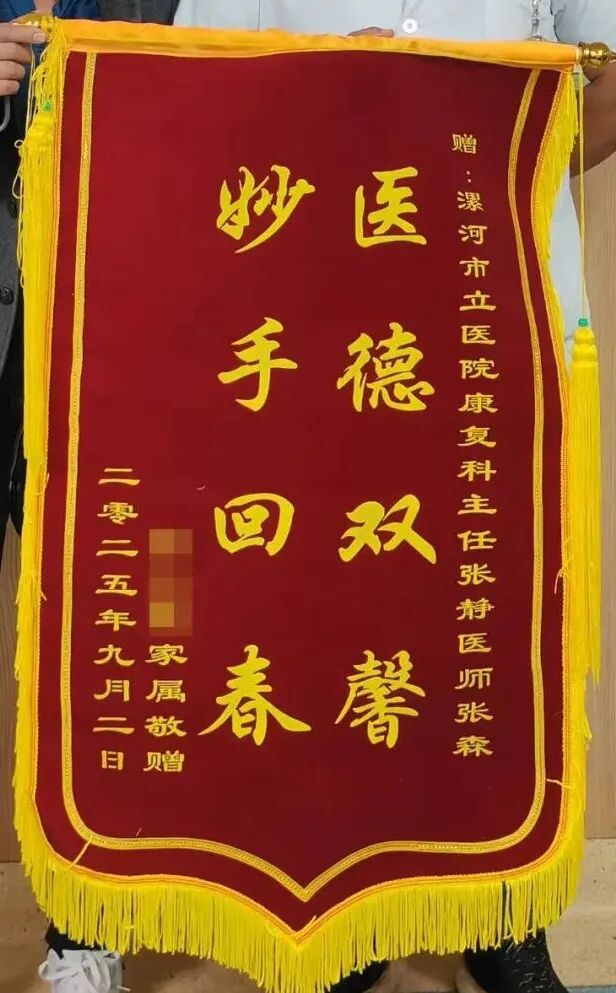 赠：漯河市立医院康复科主任张静医师张森
医德双馨
妙手回春
家属敬赠
二零二五年九月二日